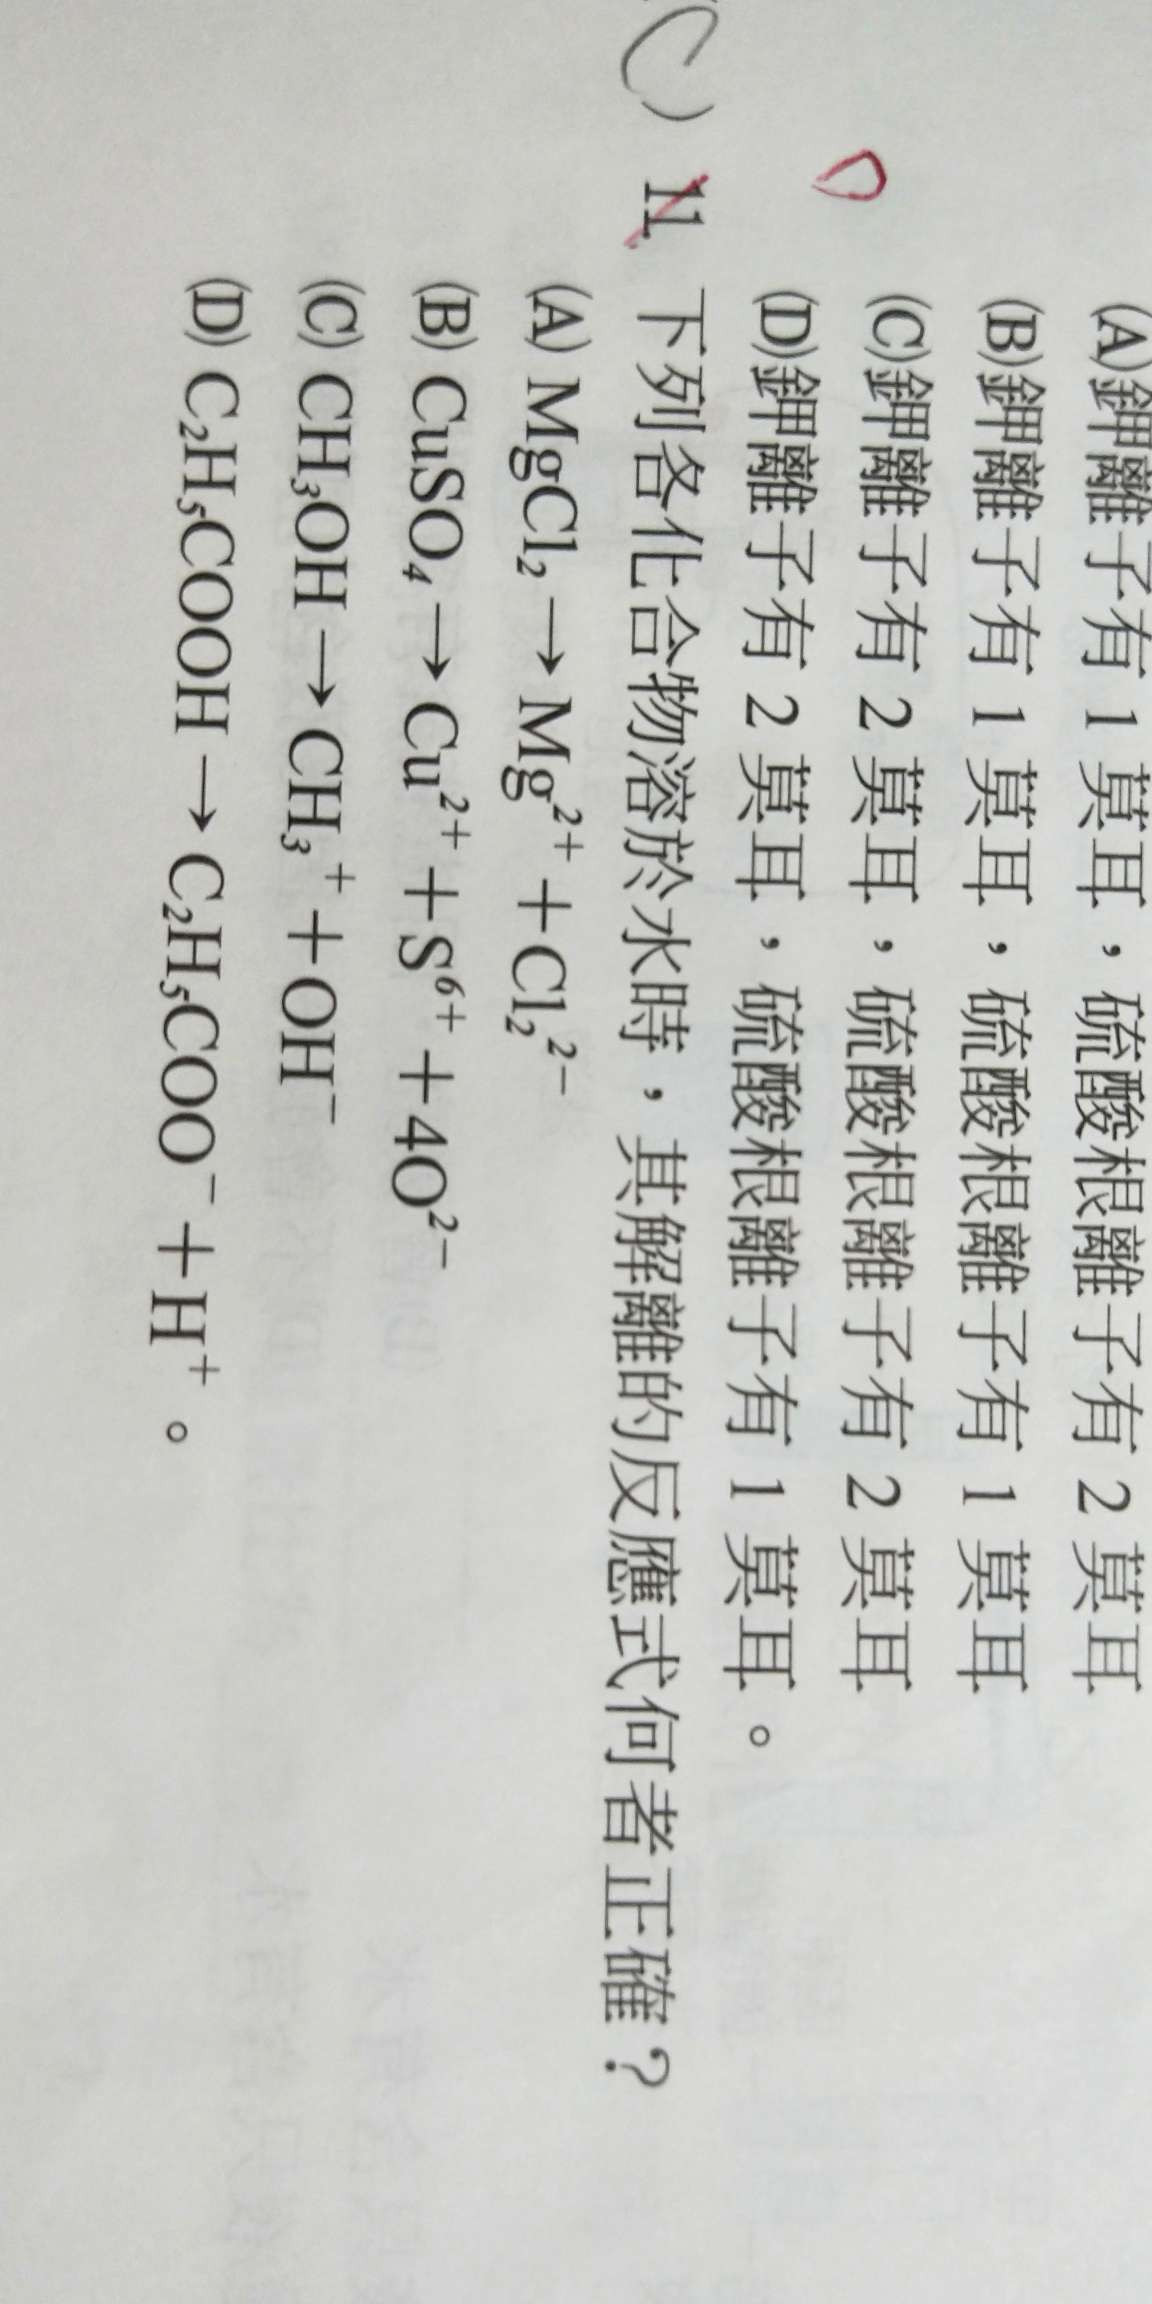 (A)鉀離子有 1 莫耳，硫酸根離子有 2 莫耳
(B)鉀離子有 1 莫耳，硫酸根離子有 1 莫耳
(C)鉀離子有 2 莫耳，硫酸根離子有 2 莫耳
(D)鉀離子有 2 莫耳，硫酸根離子有 1 莫耳。
D
(C) 11. 下列各化合物溶於水時，其解離的反應式何者正確？
(A) MgCl₂→Mg²⁺+Cl₂²⁻
(B) CuSO₄→Cu²⁺+S⁶⁺+4O²⁻
(C) CH₃OH→CH₃⁺+OH⁻
(D) C₂H₅COOH→C₂H₅COO⁻+H⁺。